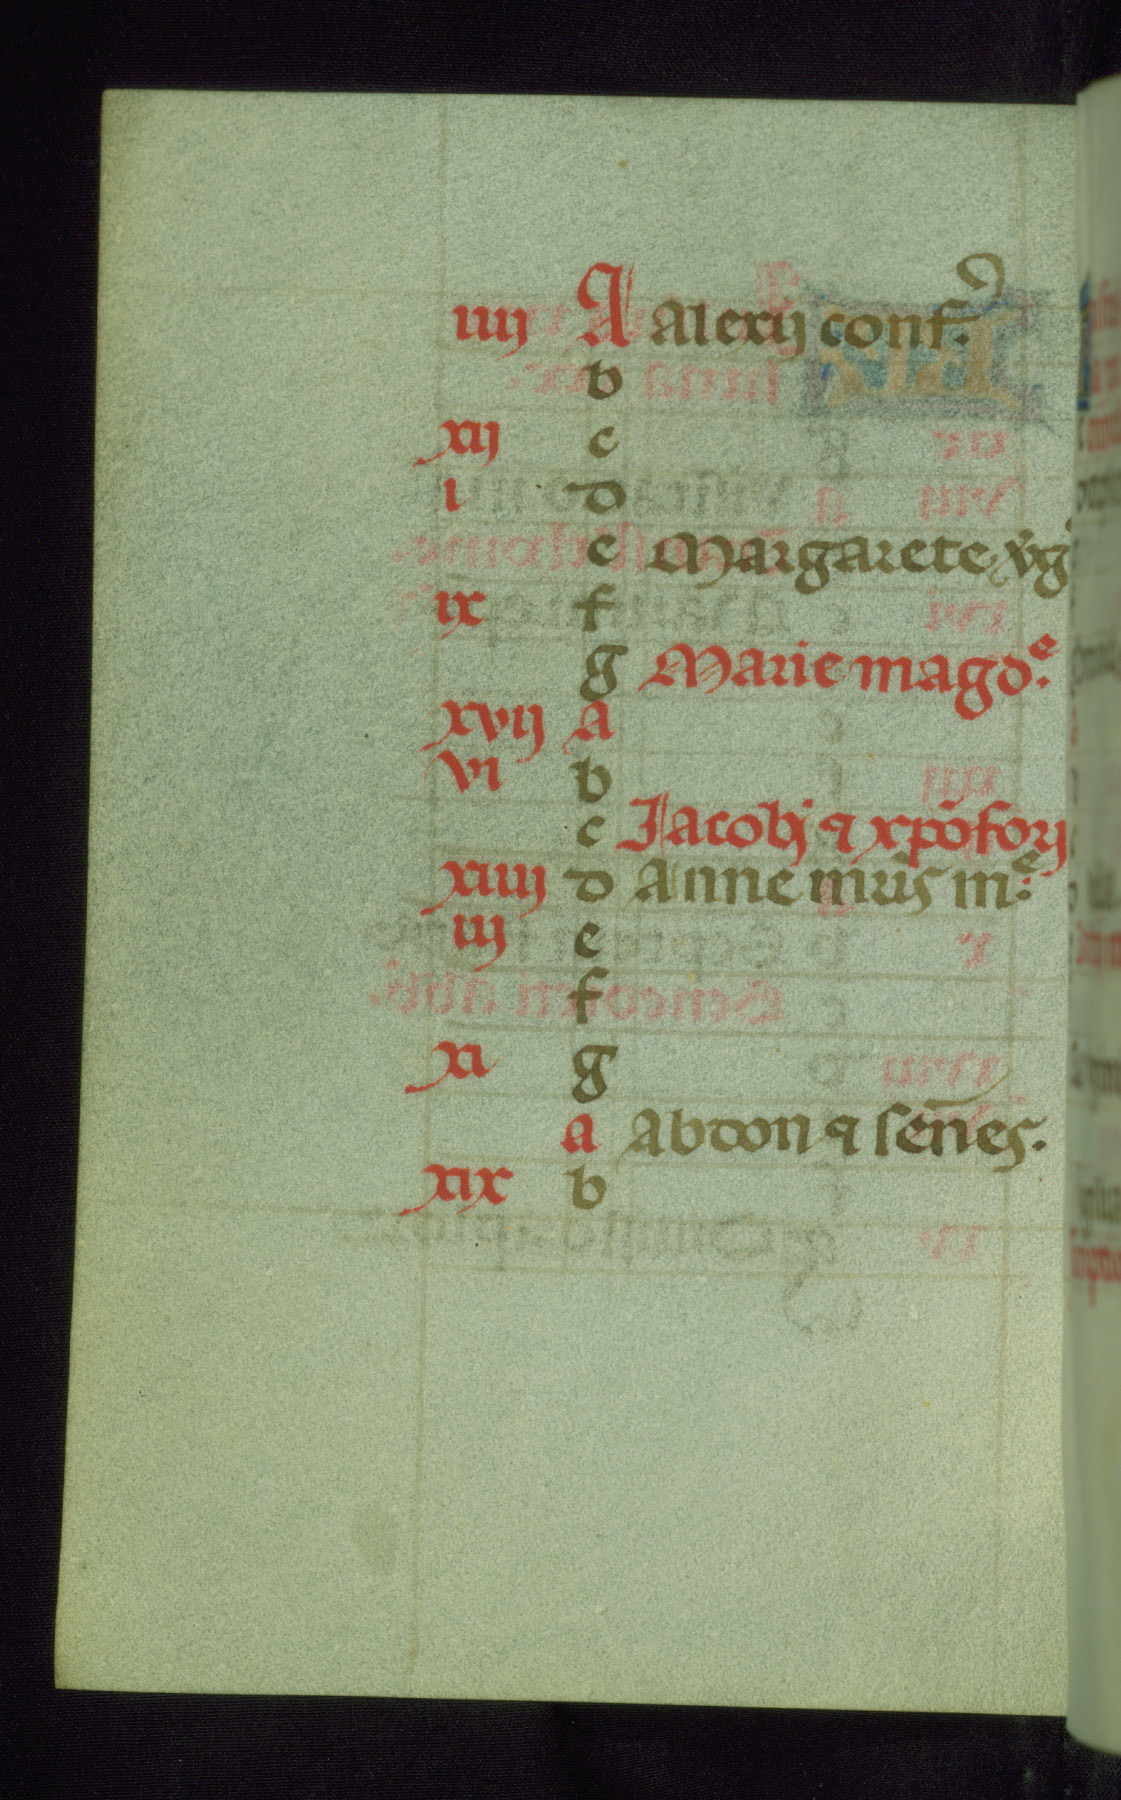 iiij A Alexij conf.
b
xij c
i d
e Margarete v̾g
ix f
g Marie magd.ͤ
xvij A
vi b
c Jacobi ⁊ xp̄ofori
xiiij d Anne mr̄is m.ͤ
iij e
f
xi g
a Abdon ⁊ sēnes.
xix b